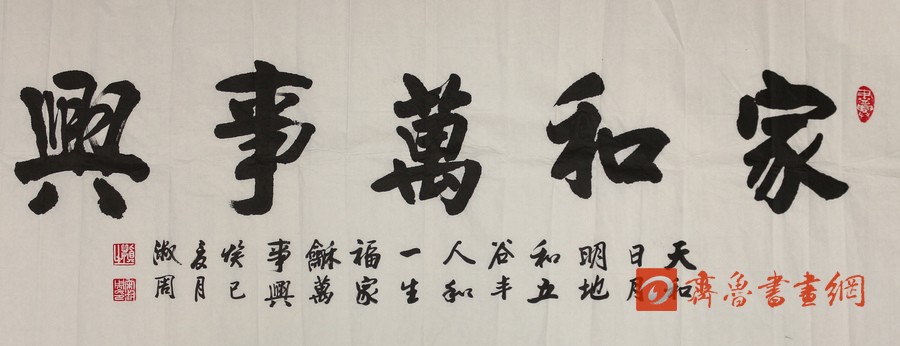 家和萬事興
天和
日月
明地
和五
谷丰
人和
一生
福家
龢萬
事興
癸巳
夏月
淑周
齊魯書畫網